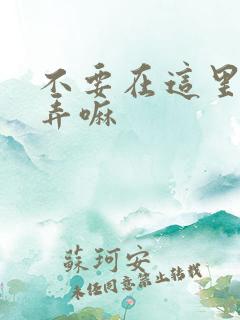 不要在這里
弄嘛
蘇珂安
未經同意禁止轉載